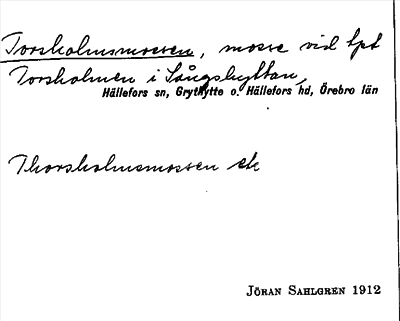 Torsholmsmossen, mosse vid tpt
Torsholmen i Sångshyttan,
Hällefors sn, Grythytte o. Hällefors hd, Örebro län
Thorsholmsmossen ek
Jöran Sahlgren 1912